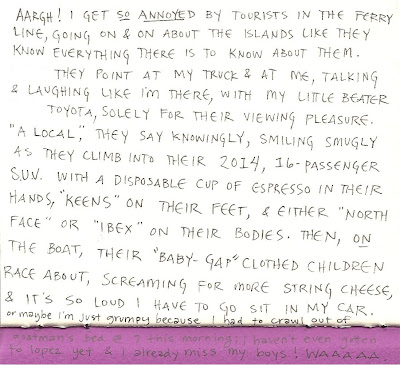 AARGH! I GET SO ANNOYED BY TOURISTS IN THE FERRY
LINE, GOING ON & ON ABOUT THE ISLANDS LIKE THEY
KNOW EVERYTHING THERE IS TO KNOW ABOUT THEM.
THEY POINT AT MY TRUCK & AT ME, TALKING
& LAUGHING LIKE I'M THERE, WITH MY LITTLE BEATER
TOYOTA, SOLELY FOR THEIR VIEWING PLEASURE.
"A LOCAL," THEY SAY KNOWINGLY, SMILING SMUGLY
AS THEY CLIMB INTO THEIR 2014, 16-PASSENGER
SUV. WITH A DISPOSABLE CUP OF ESPRESSO IN THEIR
HANDS, "KEENS" ON THEIR FEET, & EITHER "NORTH
FACE" OR "IBEX" ON THEIR BODIES. THEN, ON
THE BOAT, THEIR "BABY-GAP" CLOTHED CHILDREN
RACE ABOUT, SCREAMING FOR MORE STRING CHEESE,
& IT'S SO LOUD I HAVE TO GO SIT IN MY CAR.
or maybe I'm just grumpy because I had to crawl out of
goatman's bed @ 7 this morning; I haven't even gotten
to lopez yet & I already miss my boys! WAAAAA.